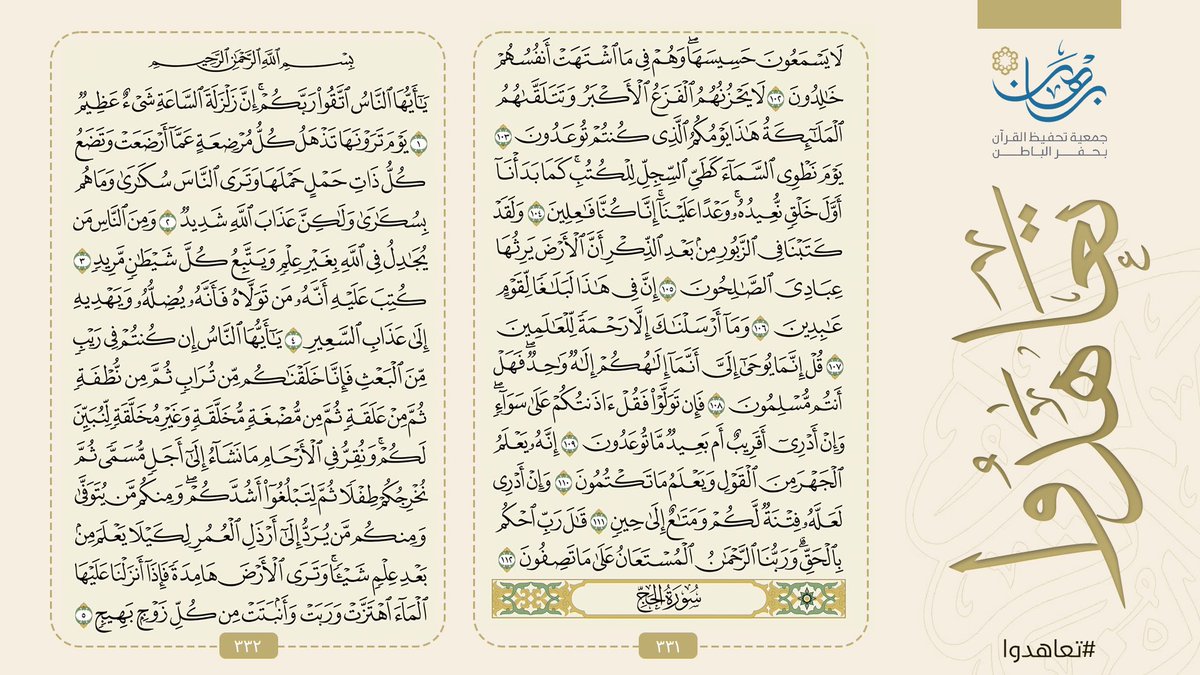 لَا يَسْمَعُونَ حَسِيسَهَا ۖ وَهُمْ فِي مَا اشْتَهَتْ أَنفُسُهُمْ
خَالِدُونَ ١٠٢ لَا يَحْزُنُهُمُ الْفَزَعُ الْأَكْبَرُ وَتَتَلَقَّاهُمُ
الْمَلَائِكَةُ هَٰذَا يَوْمُكُمُ الَّذِي كُنتُمْ تُوعَدُونَ ١٠٣
يَوْمَ نَطْوِي السَّمَاءَ كَطَيِّ السِّجِلِّ لِلْكُتُبِ ۚ كَمَا بَدَأْنَا
أَوَّلَ خَلْقٍ نُّعِيدُهُ ۚ وَعْدًا عَلَيْنَا ۚ إِنَّا كُنَّا فَاعِلِينَ ١٠٤ وَلَقَدْ
كَتَبْنَا فِي الزَّبُورِ مِن بَعْدِ الذِّكْرِ أَنَّ الْأَرْضَ يَرِثُهَا
عِبَادِيَ الصَّالِحُونَ ١٠٥ إِنَّ فِي هَٰذَا لَبَلَاغًا لِّقَوْمٍ
عَابِدِينَ ١٠٦ وَمَا أَرْسَلْنَاكَ إِلَّا رَحْمَةً لِّلْعَالَمِينَ
١٠٧ قُلْ إِنَّمَا يُوحَىٰ إِلَيَّ أَنَّمَا إِلَٰهُكُمْ إِلَٰهٌ وَاحِدٌ ۖ فَهَلْ
أَنتُم مُّسْلِمُونَ ١٠٨ فَإِن تَوَلَّوْا فَقُلْ آذَنتُكُمْ عَلَىٰ سَوَاءٍ ۖ
وَإِنْ أَدْرِي أَقَرِيبٌ أَم بَعِيدٌ مَّا تُوعَدُونَ ١٠٩ إِنَّهُ يَعْلَمُ
الْجَهْرَ مِنَ الْقَوْلِ وَيَعْلَمُ مَا تَكْتُمُونَ ١١٠ وَإِنْ أَدْرِي
لَعَلَّهُ فِتْنَةٌ لَّكُمْ وَمَتَاعٌ إِلَىٰ حِينٍ ١١١ قَالَ رَبِّ احْكُم
بِالْحَقِّ ۗ وَرَبُّنَا الرَّحْمَٰنُ الْمُسْتَعَانُ عَلَىٰ مَا تَصِفُونَ ١١٢
سُورَةُ الْحَجِّ
٣٣١
بِسْمِ اللَّهِ الرَّحْمَٰنِ الرَّحِيمِ
يَا أَيُّهَا النَّاسُ اتَّقُوا رَبَّكُمْ ۚ إِنَّ زَلْزَلَةَ السَّاعَةِ شَيْءٌ عَظِيمٌ
١ يَوْمَ تَرَوْنَهَا تَذْهَلُ كُلُّ مُرْضِعَةٍ عَمَّا أَرْضَعَتْ وَتَضَعُ
كُلُّ ذَاتِ حَمْلٍ حَمْلَهَا وَتَرَى النَّاسَ سُكَارَىٰ وَمَا هُم
بِسُكَارَىٰ وَلَٰكِنَّ عَذَابَ اللَّهِ شَدِيدٌ ٢ وَمِنَ النَّاسِ مَن
يُجَادِلُ فِي اللَّهِ بِغَيْرِ عِلْمٍ وَيَتَّبِعُ كُلَّ شَيْطَانٍ مَّرِيدٍ ٣
كُتِبَ عَلَيْهِ أَنَّهُ مَن تَوَلَّاهُ فَأَنَّهُ يُضِلُّهُ وَيَهْدِيهِ
إِلَىٰ عَذَابِ السَّعِيرِ ٤ يَا أَيُّهَا النَّاسُ إِن كُنتُمْ فِي رَيْبٍ
مِّنَ الْبَعْثِ فَإِنَّا خَلَقْنَاكُم مِّن تُرَابٍ ثُمَّ مِن نُّطْفَةٍ
ثُمَّ مِنْ عَلَقَةٍ ثُمَّ مِن مُّضْغَةٍ مُّخَلَّقَةٍ وَغَيْرِ مُخَلَّقَةٍ لِّنُبَيِّنَ
لَكُمْ ۚ وَنُقِرُّ فِي الْأَرْحَامِ مَا نَشَاءُ إِلَىٰ أَجَلٍ مُّسَمًّى ثُمَّ
نُخْرِجُكُمْ طِفْلًا ثُمَّ لِتَبْلُغُوا أَشُدَّكُمْ ۖ وَمِنكُم مَّن يُتَوَفَّىٰ
وَمِنكُم مَّن يُرَدُّ إِلَىٰ أَرْذَلِ الْعُمُرِ لِكَيْلَا يَعْلَمَ مِن
بَعْدِ عِلْمٍ شَيْئًا ۚ وَتَرَى الْأَرْضَ هَامِدَةً فَإِذَا أَنزَلْنَا عَلَيْهَا
الْمَاءَ اهْتَزَّتْ وَرَبَتْ وَأَنبَتَتْ مِن كُلِّ زَوْجٍ بَهِيجٍ ٥
٣٣٢
برهان
جمعية تحفيظ القرآن
بحفر الباطن
تَعَاهَدُوا
#تعاهدوا